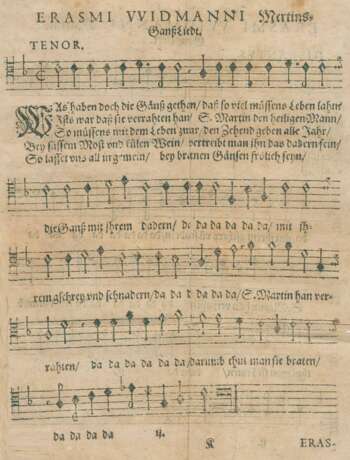 ERASMI VVIDMANNI Mertins-
Ganß Liedt.
TENOR.
WAs haben doch die Gänß gethan/ daß so viel müssens Leben lahn/
Ists war daß sie verrahten han/ S. Martin den heiligen Mann/
So müssens mit dem Leben zwar/ den Zehend geben alle Jahr/
Bey süssem Most vnd külen Wein/ vertreibt man jhn das dadern sein/
So lasset vns all in gmein/ bey branen Gänsen frölich seyn/
die Ganß mit jhrem dadern/ da da da da da da/ mit jh-
rem gschrey vnd schnadern/ da da da da da da/ S. Martin han ver-
rahten/ da da da da da da/ darumb thut man sie braten/
da da da da ij.
A ERAS-